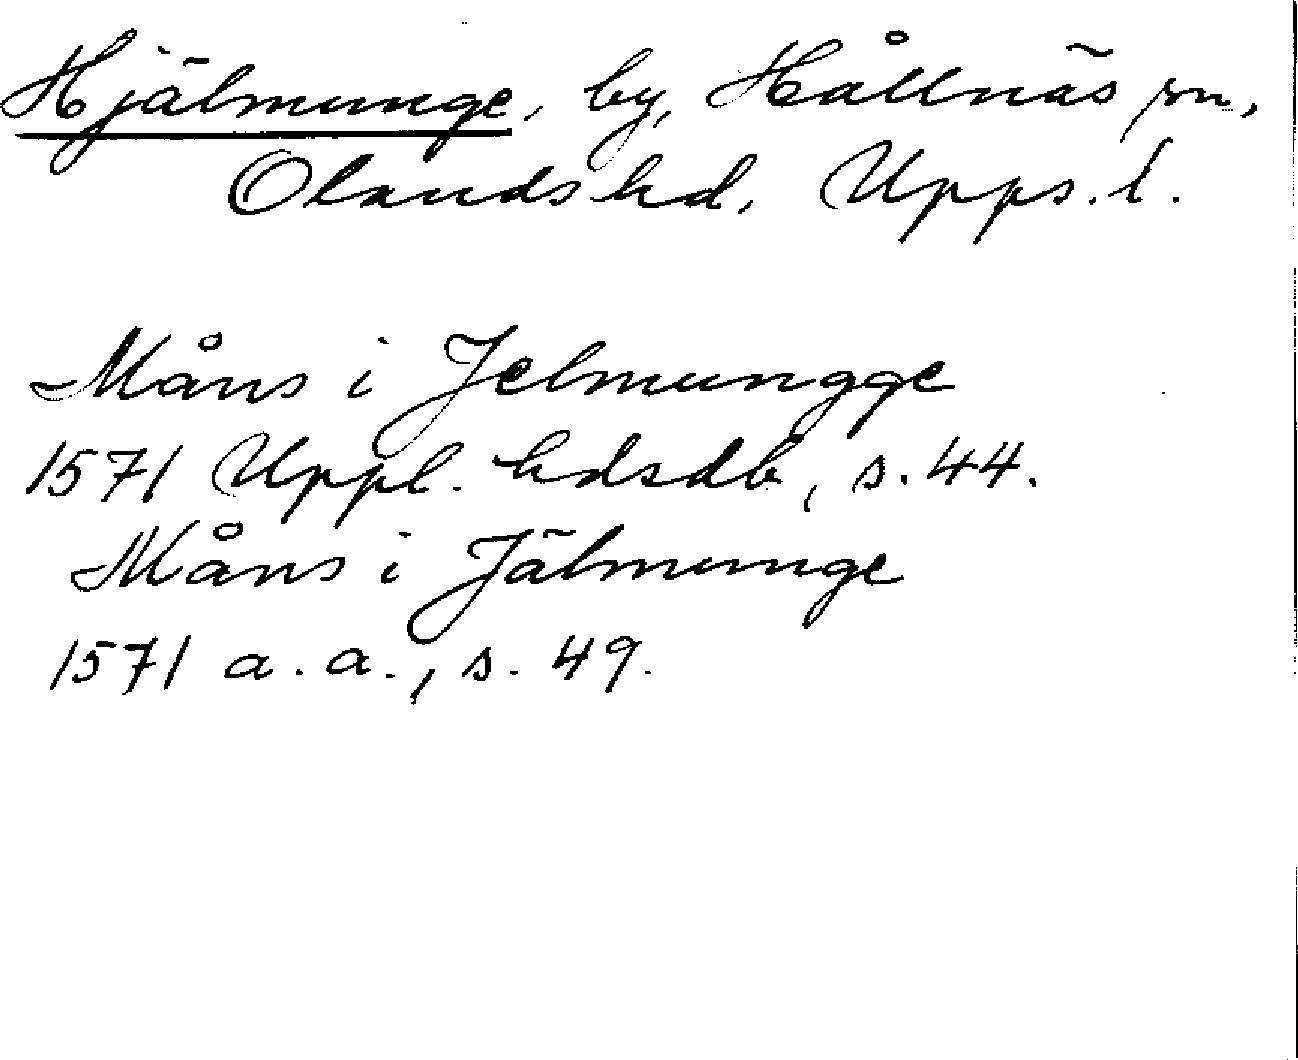 Hjälmunge, by, Hållnäs sn,
Olands hd, Upps. l.
Måns i Jelmungge
1571 Uppl. hdsdb, s. 44.
Måns i Jälmunge
1571 a. a., s. 49.